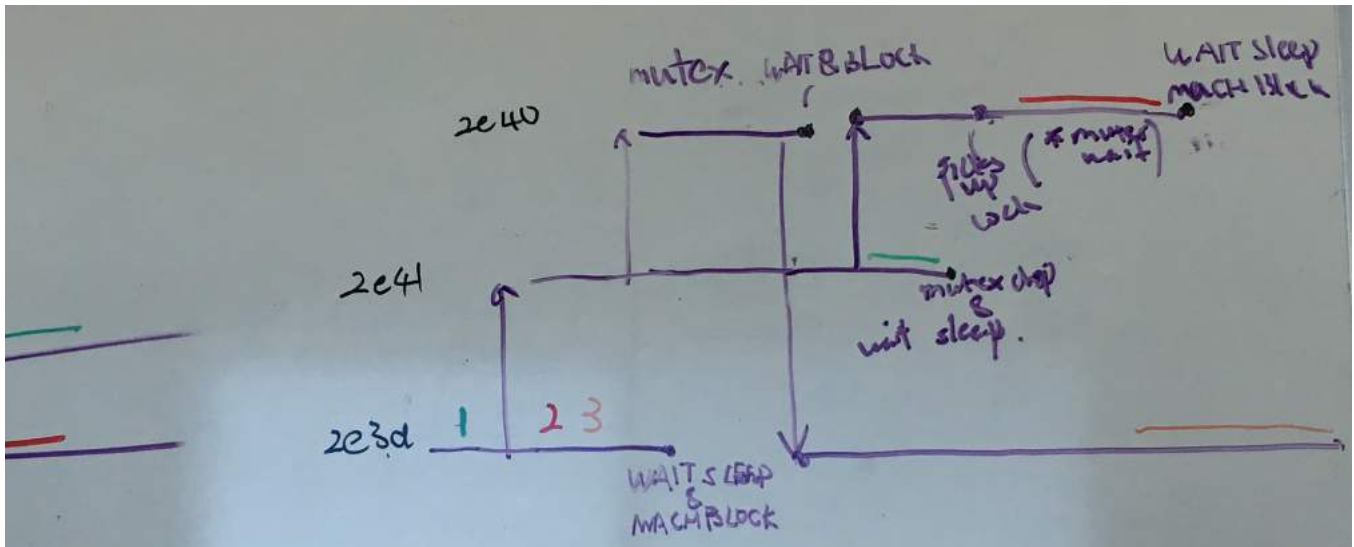 mutex. WAIT & BLOCK
WAIT Sleep
MACH Block
2e40
picks
up
lock
(* mutex
wait)
2e41
mutex drop
&
wait sleep.
1 2 3
2e3d
WAIT SLEEP
&
MACH BLOCK